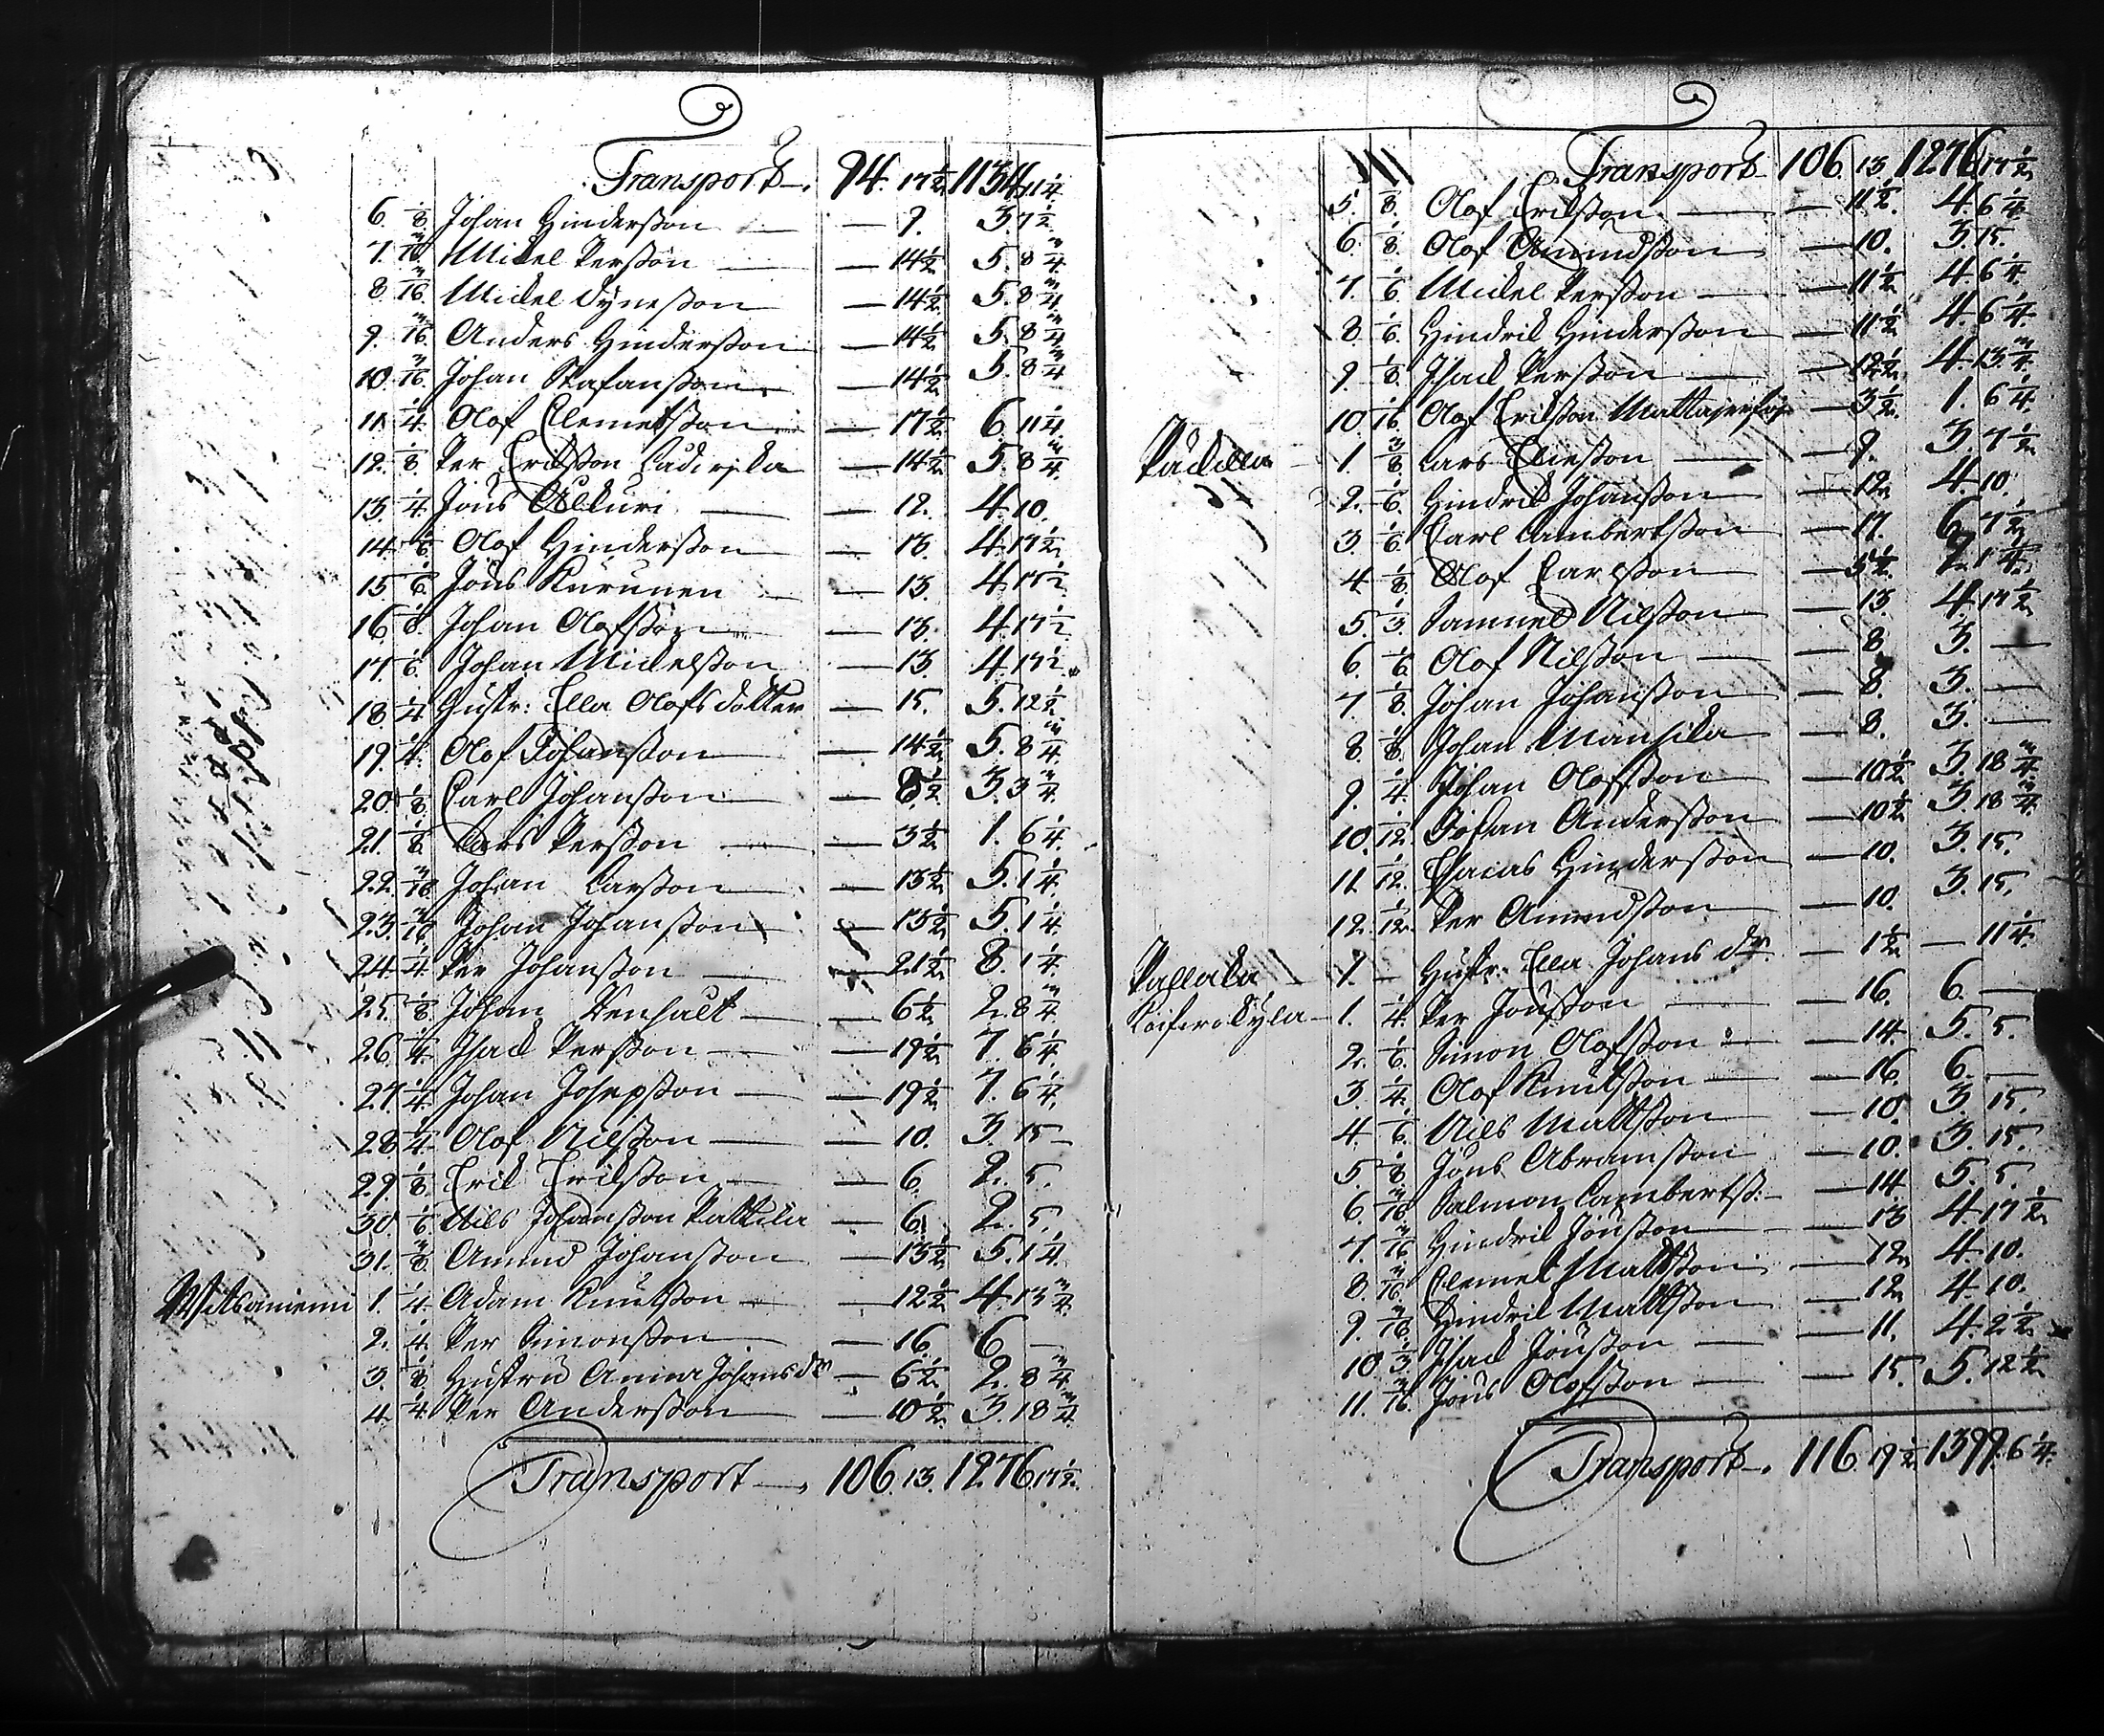 Transport 94. 17½ 1134 11¼
6. ⅛ Johan Hindersson — 9. 3 7½
7. 3/16 Mickel Persson — 14½ 5. 8¾
8. 3/16 Mickel Dÿnesson — 14½ 5. 8¾
9. 3/16 Anders Hindersson — 14½ 5. 8¾
10. 3/16 Johan Stafansson — 14½ 5. 8¾
11. ¼ Olof Clemetsson — 17½ 6 11¼
12. ⅛ Per Ericksson — 14½ 5. 8¾
13. ¼ Jöns Alkuri — 12. 4 10.
14. ⅙ Olof Hindersson — 13. 4 17½
15. ⅙ Jöns Kurunen — 13. 4 17½
16. ⅛ Johan Olofsson — 13. 4 17½
17. ⅙ Johan Mickelsson — 13 4. 17½
18. ¼ Hustr: Ella Olofs dotter — 15. 5. 12½
19. ¼ Olof Johansson — 14½ 5. 8¾
20. ⅛ Carl Johansson — 8½ 3. 3¾
21. ⅛ Lars Persson — 3½ 1. 6¼
22. 3/16 Johan Larsson — 13½ 5. 1¼
23. 3/16 Johan Johansson — 13½ 5. 1¼
24. ¼ Per Johansson — 21½ 8. 1¼
25. ⅛ Johan Kenhalt — 6½ 2. 8¾
26. ¼ Isack Persson — 19½ 7. 6¼
27. ¼ Johan Josepsson — 19½ 7. 6¼
28. ¼ Olof Nilsson — 10. 3. 15
29. ⅛ Erick Ericksson — 6. 2. 5.
30. ⅙ Nils Johansson Pattila — 6. 2. 5.
31. ⅜ Amund Johansson — 13½ 5. 1¼
Witsaniemi 1. ¼ Adam Knutsson — 12½ 4. 13¾
2. ¼ Per Simonsson — 16. 6 —
3. ⅛ Hustru Anna Johansdr — 6½ 2. 8¾
4. ¼ Per Andersson — 10½ 3. 18¾
Transport — 106. 13. 1276. 17½
Transport 106. 13 1276 17½
5. ⅛ Olof Ericksson — 11½ 4. 6¼
6. ⅛ Olof Amundsson — 10. 3. 15.
7. ⅙ Mickel Persson — 11½ 4. 6¼
8. ⅙ Hindrick Hindersson — 11½ 4. 6¼
9. ⅛ Isack Persson — 12½ 4. 13¾
10. 1/16 Olof Ericksson — 3½ 1. 6¼
Päckila 1. ⅜ Lars Eliesson — 9. 3 7½
2. ⅙ Hindrick Johansson — 12 4 10.
3. ⅙ Carl Lambertsson — 17. 6 7½
4. ⅛ Olof Carlsson — 5½ 2. 1¼
5. ⅓ Samuel Nilsson — 13. 4 17½
6. ⅙ Olof Nilsson — 8 3. —
7. ⅛ Johan Johansson — 8. 3. —
8. ⅛ Johan Mansika — 8. 3. —
9. ¼ Johan Olofsson — 10½ 3. 18¾
10. 1/12 Johan Andersson — 10½ 3. 18¾
11. 1/12 Esaias Hindersson — 10. 3. 15.
12. 1/12 Per Amundsson — 10. 3. 15.
1. — Hustr: Ella Johans dr — 1½ — 11¼
1. ¼ Per Jönsson — 16. 6. —
2. ⅙ Simon Olofsson — 14. 5. 5.
3. ¼ Olof Knutsson — 16 6. —
4. ⅙ Nils Mattsson — 10. 3. 15.
5. ⅛ Jöns Abramsson — 10. 3. 15.
6. 3/16 Salmon Lambertss: — 14 5. 5.
7. 3/16 Hindrick Jönsson — 13 4. 17½
8. 3/16 Clemet Mattsson — 12 4. 10.
9. 3/16 Hindrick Mattsson — 12 4. 10.
10. ⅓ Isack Jönsson — 11. 4. 2½
11. 3/16 Jöns Olofsson — 15. 5. 12½
Transport — 116. 19½ 1399. 6¼